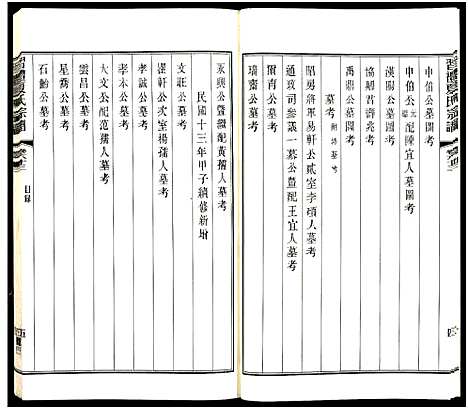 申伯公墓圖考
申伯公元配陳宜人墓圖考
漢陽公墓考
協卿君壽藏考
禹鼎公墓考
墓考
昭勇將軍易軒公貳室李碩人墓考
通政司參議一慕公暨配王宜人墓考
隱南公墓考
瑞齋公墓考
永興公暨繼配黃孺人墓考
民國十三年甲子續修新增
文莊公墓考
公次室楊孺人墓考
孝永公墓考
孝誠公墓考
大文公配范孺人墓考
雲昌公墓考
星喬公墓考
石齡公墓考
目錄